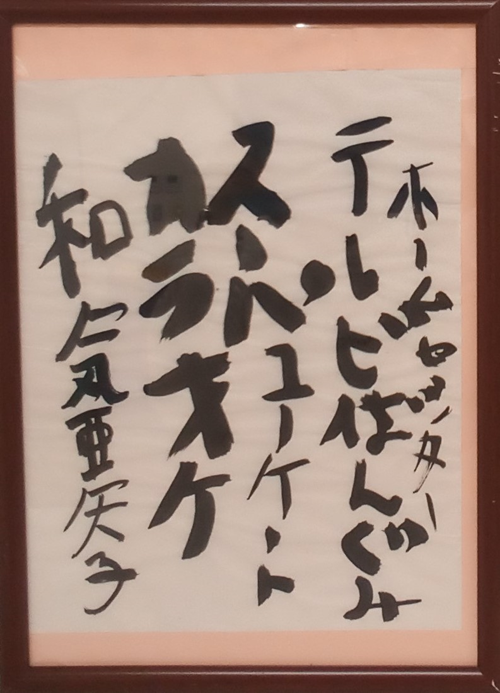 ホームセンター
テレビばんぐみ
スーパユーケート
カラオケ
和仁気亜矢子